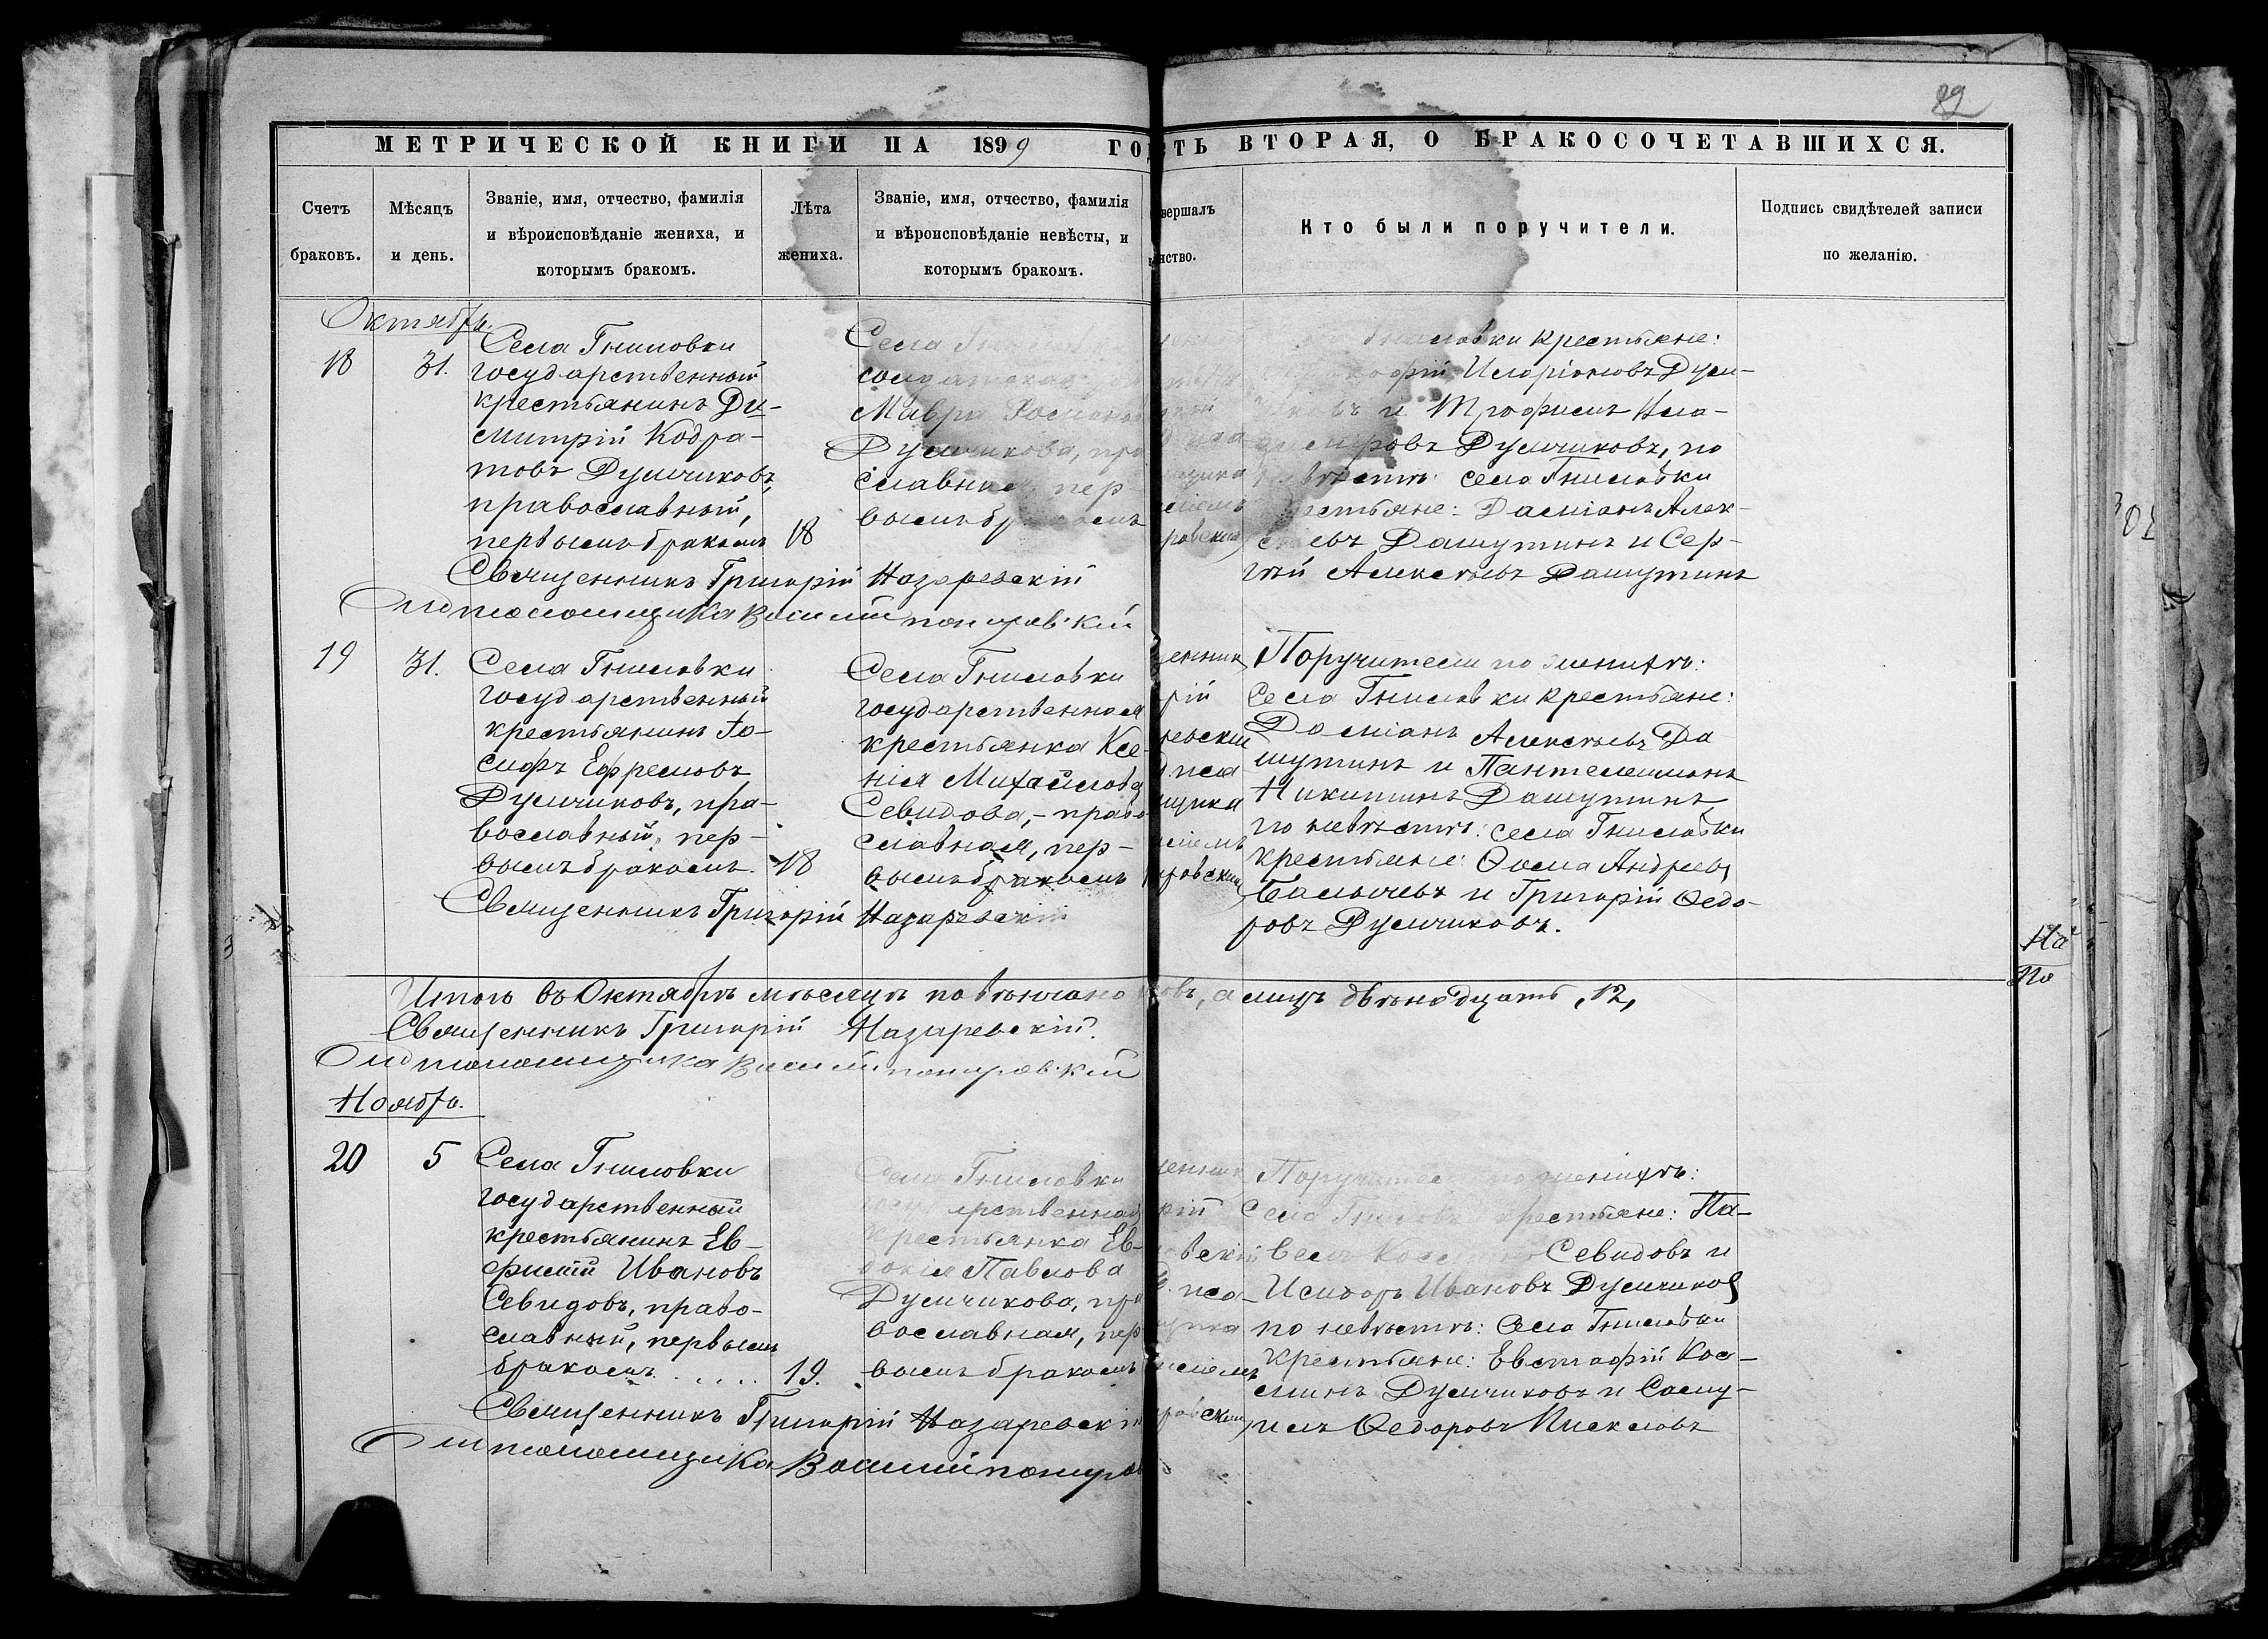 82
МЕТРИЧЕСКОЙ КНИГИ НА 1899 ГО
СТЬ ВТОРАЯ, О БРАКОСОЧЕТАВШИХСЯ.
Счетъ браковъ.
Мѣсяцъ и день.
Званіе, имя, отчество, фамилія
и вѣроисповѣданіе жениха, и
которымъ бракомъ.
Лѣта жениха.
Званіе, имя, отчество, фамилія
и вѣроисповѣданіе невѣсты, и
которымъ бракомъ.
вершалъ
нство.
Кто были поручители.
Подпись свидѣтелей записи
по желанію.
Октябрь.
18
31.
Села Гниловки
государственный
крестьянинъ Ди-
митрій Кодра-
товъ Думчиковъ,
православный,
первымъ бракомъ
18
Села
Мавра
Думчикова, пра
славная, пер-
вымъ бракомъ
Гниловки крестьяне:
Иларіоновъ Думч-
иковъ и Трофимъ
Думчиковъ, по
невѣстѣ: села Гниловки
крестьяне: Даміанъ Алек-
сѣевъ Дашутинъ и Сер-
гѣй Алексѣевъ Дашутинъ
Священникъ Григорій Назаревскій
И. д. псаломщика Василій
19
31.
Села Гниловки
государственный
крестьянинъ Іо-
сифъ Ефремовъ
Думчиковъ, пра-
вославный, пер-
вымъ бракомъ.
18
Села Гниловки
государственная
крестьянка Ксе-
нія Михайлова
Севидова, - право
славная, пер-
вымъ бракомъ
Поручители по женихѣ:
села Гниловки крестьяне:
Даміанъ Алексѣевъ Да
шутинъ и Пантелеимонъ
Никитинъ Дашутинъ,
по невѣстѣ: села Гниловки
крестьяне: Ѳома Андреевъ
и Григорій Ѳедо-
ровъ Думчиковъ.
Священникъ Григорій Назаревскій
Итого въ Октябрѣ мѣсяцѣ повѣнчано
овъ, а лицъ двѣнадцать, 12,
Священникъ Григорій Назаревскій.
И. д. псаломщика Василій
Ноябрь.
20
5
Села Гниловки
государственный
крестьянинъ Ев-
фимій Ивановъ
Севидовъ, право-
славный, первымъ
бракомъ
19.
Села Гниловки
государственная
крестьянка Ев-
докія Павлова
Думчикова, пра
вославная, пер
вымъ бракомъ
Поручители по женихѣ:
Села Гниловки крестьяне: Па-
велъ Севидовъ и
Исидоръ Ивановъ Думчиковъ
по невѣстѣ: села Гниловки
крестьяне: Евстафій Кос-
минъ Думчиковъ и Саму-
илъ Ѳедоровъ
Священникъ Григорій Назаревскій
И. д. псаломщика Василій
На
По